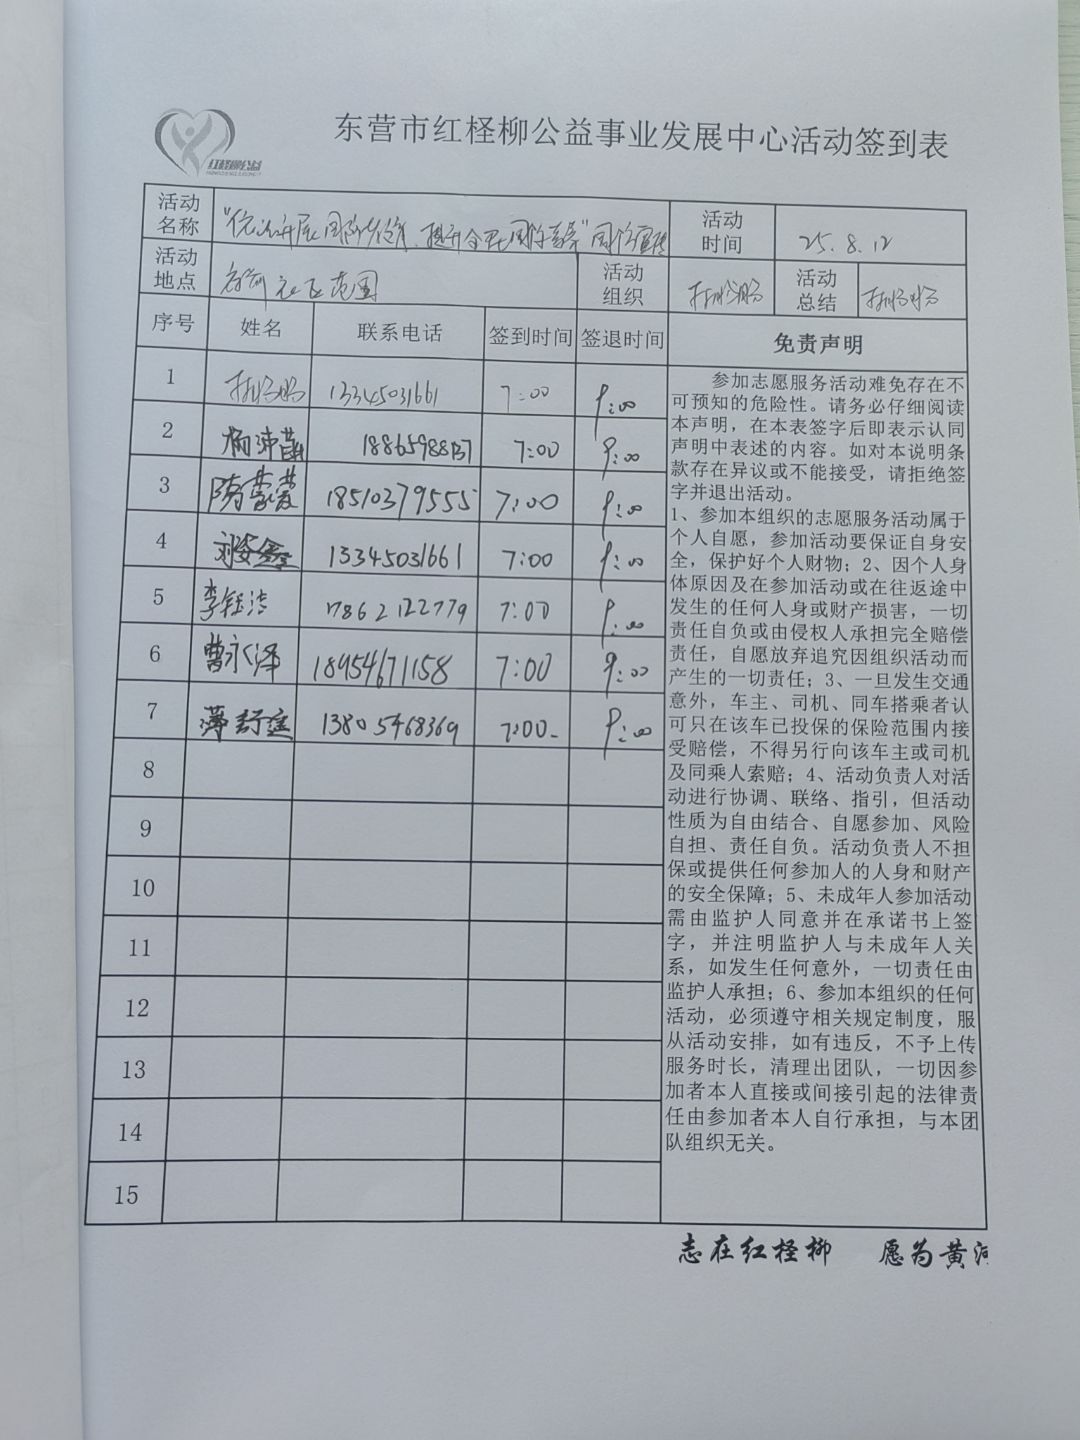 红柽柳公益
东营市红柽柳公益事业发展中心活动签到表
活动名称
活动时间
25.8.12
活动地点
社区范围
活动组织
活动总结
序号 姓名 联系电话 签到时间 签退时间 免责声明
1 13345031661 7:00 9:00
2 杨沛 7:00 9:00
3 18510379555 7:00 9:00
4 刘 鑫 13345031661 7:00 9:00
5 李钰洁 17862122779 7:00 9:00
6 曹永泽 18954671158 7:00 9:00
7 薄 13805468369 7:00 9:00
8
9
10
11
12
13
14
15
参加志愿服务活动难免存在不
可预知的危险性。请务必仔细阅读
本声明，在本表签字后即表示认同
声明中表述的内容。如对本说明条
款存在异议或不能接受，请拒绝签
字并退出活动。
1、参加本组织的志愿服务活动属于
个人自愿，参加活动要保证自身安
全，保护好个人财物；2、因个人身
体原因及在参加活动或在往返途中
发生的任何人身或财产损害，一切
责任自负或由侵权人承担完全赔偿
责任，自愿放弃追究因组织活动而
产生的一切责任；3、一旦发生交通
意外，车主、司机、同车搭乘者认
可只在该车已投保的保险范围内接
受赔偿，不得另行向该车主或司机
及同乘人索赔；4、活动负责人对活
动进行协调、联络、指引，但活动
性质为自由结合、自愿参加、风险
自担、责任自负。活动负责人不担
保或提供任何参加人的人身和财产
的安全保障；5、未成年人参加活动
需由监护人同意并在承诺书上签
字，并注明监护人与未成年人关
系，如发生任何意外，一切责任由
监护人承担；6、参加本组织的任何
活动，必须遵守相关规定制度，服
从活动安排，如有违反，不予上传
服务时长，清理出团队，一切因参
加者本人直接或间接引起的法律责
任由参加者本人自行承担，与本团
队组织无关。
志在红柽柳 愿为黄河